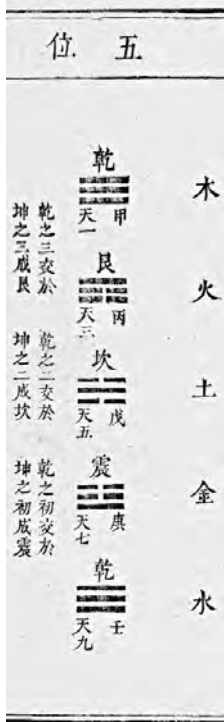 五位
木
火
土
金
水
乾
甲
天一
艮
丙
天三
坎
戊
天五
震
庚
天七
乾
壬
天九
乾之三交於
坤之三成艮
乾之二交於
坤之二成坎
乾之初交於
坤之初成震